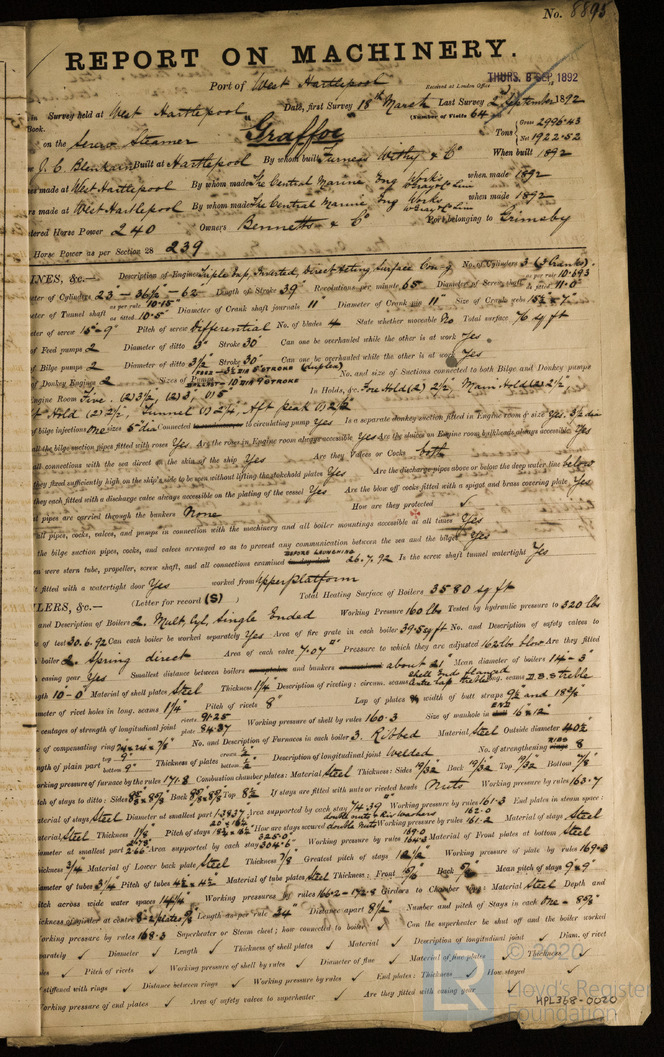 No. 8895
REPORT ON MACHINERY.
Port of West Hartlepool
Received at London Office THURS. 8 SEP. 1892
in Survey held at West Hartlepool Date, first Survey 18th March Last Survey 2 September 1892
Book. (Number of Visits 64)
on the Screw Steamer "Graffoe" Tons Gross 2996.43 Net 1922.52
J. C. Blenkarn Built at Hartlepool By whom built Furness Withy & Co When built 1892
es made at West Hartlepool By whom made The Central Marine Eng Works when made 1892
rs made at West Hartlepool By whom made The Central Marine Eng Works when made 1892
tered Horse Power 240 Owners Bennetts & Co Port belonging to Grimsby
Horse Power as per Section 28 239
INES, &c.— Description of Engines Triple Exp, Inverted, Direct Acting, Surface Con'g No. of Cylinders 3 (3 Cranks)
eter of Cylinders 23"—36½—62" Length of Stroke 39" Revolutions per minute 65 Diameter of Screw shaft as per rule 10.693 as fitted 11.0"
eter of Tunnel shaft as per rule 10.15" as fitted 10.5" Diameter of Crank shaft journals 11" Diameter of Crank pin 11" Size of Crank webs 15½ x 7"
eter of screw 15–9" Pitch of screw Differential No. of blades 4 State whether moveable No Total surface 76 sq ft
of Feed pumps 2 Diameter of ditto 3" Stroke 30" Can one be overhauled while the other is at work Yes
of Bilge pumps 2 Diameter of ditto 3½ Stroke 30" Can one be overhauled while the other is at work Yes
of Donkey Engines 2 Sizes of Pumps No. and size of Suctions connected to both Bilge and Donkey pumps
Engine Room Five. (2) 3½, (2) 3, (1) 5" In Holds, &c. Fore Hold (2) 2½, Main Hold (2) 2½",
Hold (2) 2½, Tunnel (1) 2½, Aft peak (1) 2½
of bilge injections One sizes 5" dia Connected to circulating pump Yes Is a separate donkey suction fitted in Engine room & size Yes, 3½ dia
all the bilge suction pipes fitted with roses Yes Are the roses in Engine room always accessible Yes Are the sluices on Engine room bulkheads always accessible Yes
all connections with the sea direct on the skin of the ship Yes Are they Valves or Cocks both
they fixed sufficiently high on the ship's side to be seen without lifting the stokehold plates Yes Are the discharge pipes above or below the deep water line below
they each fitted with a discharge valve always accessible on the plating of the vessel Yes Are the blow off cocks fitted with a spigot and brass covering plate Yes
at pipes are carried through the bunkers None How are they protected ✓
all pipes, cocks, valves, and pumps in connection with the machinery and all boiler mountings accessible at all times Yes
the bilge suction pipes, cocks, and valves arranged so as to prevent any communication between the sea and the bilges Yes
en were stern tube, propeller, screw shaft, and all connections examined BEFORE LAUNCHING 26.7.92 Is the screw shaft tunnel watertight Yes
t fitted with a watertight door Yes worked from Upper platform
LERS, &c.— (Letter for record (S)) Total Heating Surface of Boilers 3580 sq ft
and Description of Boilers 2. Mult, Cyl, Single Ended Working Pressure 160 lbs Tested by hydraulic pressure to 320 lbs
e of test 30.6.92 Can each boiler be worked separately Yes Area of fire grate in each boiler 39.5 sq ft No. and Description of safety valves to
boiler 2. Spring direct Area of each valve 7.07 □" Pressure to which they are adjusted 162 lbs blow Are they fitted
casing gear Yes Smallest distance between boilers and bunkers about 21" Mean diameter of boilers 14'–3"
gth 10–0" Material of shell plates Steel Thickness 1¼ Description of riveting: circum. seams long. seams D.B.S treble
meter of rivet holes in long. seams 1¼ Pitch of rivets 8" Lap of plates or width of butt straps 9½ and 18⅜
centages of strength of longitudinal joint rivets 91.25 plate 84.37 Working pressure of shell by rules 160.3 Size of manhole in end 16" x 12"
e of compensating ring No. and Description of Furnaces in each boiler 3. Ribbed Material Steel Outside diameter 40½
gth of plain part top 9" bottom 9" Thickness of plates crown ½" bottom ½" Description of longitudinal joint Welded No. of strengthening RIBS 8
orking pressure of furnace by the rules 171.8 Combustion chamber plates: Material Steel Thickness: Sides 19/32 Back 19/32 Top 19/32 Bottom 7/8
tch of stays to ditto: Sides Back Top 8½ If stays are fitted with nuts or riveted heads Nuts Working pressure by rules 163.7
aterial of stays Steel Diameter at smallest part Area supported by each stay 74.39 □" Working pressure by rules 161.3 End plates in steam space:
aterial Steel Thickness 1⅛ Pitch of stays How are stays secured Working pressure by rules 161.2 Material of stays Steel
iameter at smallest part Area supported by each stay Working pressure by rules Material of Front plates at bottom Steel
hickness ¾ Material of Lower back plate Steel Thickness ⅞ Greatest pitch of stays Working pressure of plate by rules 169.3
iameter of tubes 3¼ Pitch of tubes 4½ x 4½ Material of tube plates Steel Thickness: Front Back Mean pitch of stays 9 x 9"
itch across wide water spaces 14¼" Working pressures by rules 166.2 – 172.8 Girders to Chamber tops: Material Steel Depth and
hickness of girder at centre Length as per rule 34" Distance apart 8½ Number and pitch of Stays in each One –
orking pressure by rules 168.3 Superheater or Steam chest; how connected to boiler Can the superheater be shut off and the boiler worked
parately ✓ Diameter ✓ Length ✓ Thickness of shell plates ✓ Material ✓ Description of longitudinal joint ✓ Diam. of rivet
es ✓ Pitch of rivets ✓ Working pressure of shell by rules ✓ Diameter of flue ✓ Material of flue plates ✓ Thickness ✓
stiffened with rings ✓ Distance between rings ✓ Working pressure by rules ✓ End plates: Thickness ✓ How stayed ✓
orking pressure of end plates ✓ Area of safety valves to superheater ✓ Are they fitted with easing gear ✓
LR © 2020
Lloyd's Register
Foundation
HPL368-0020